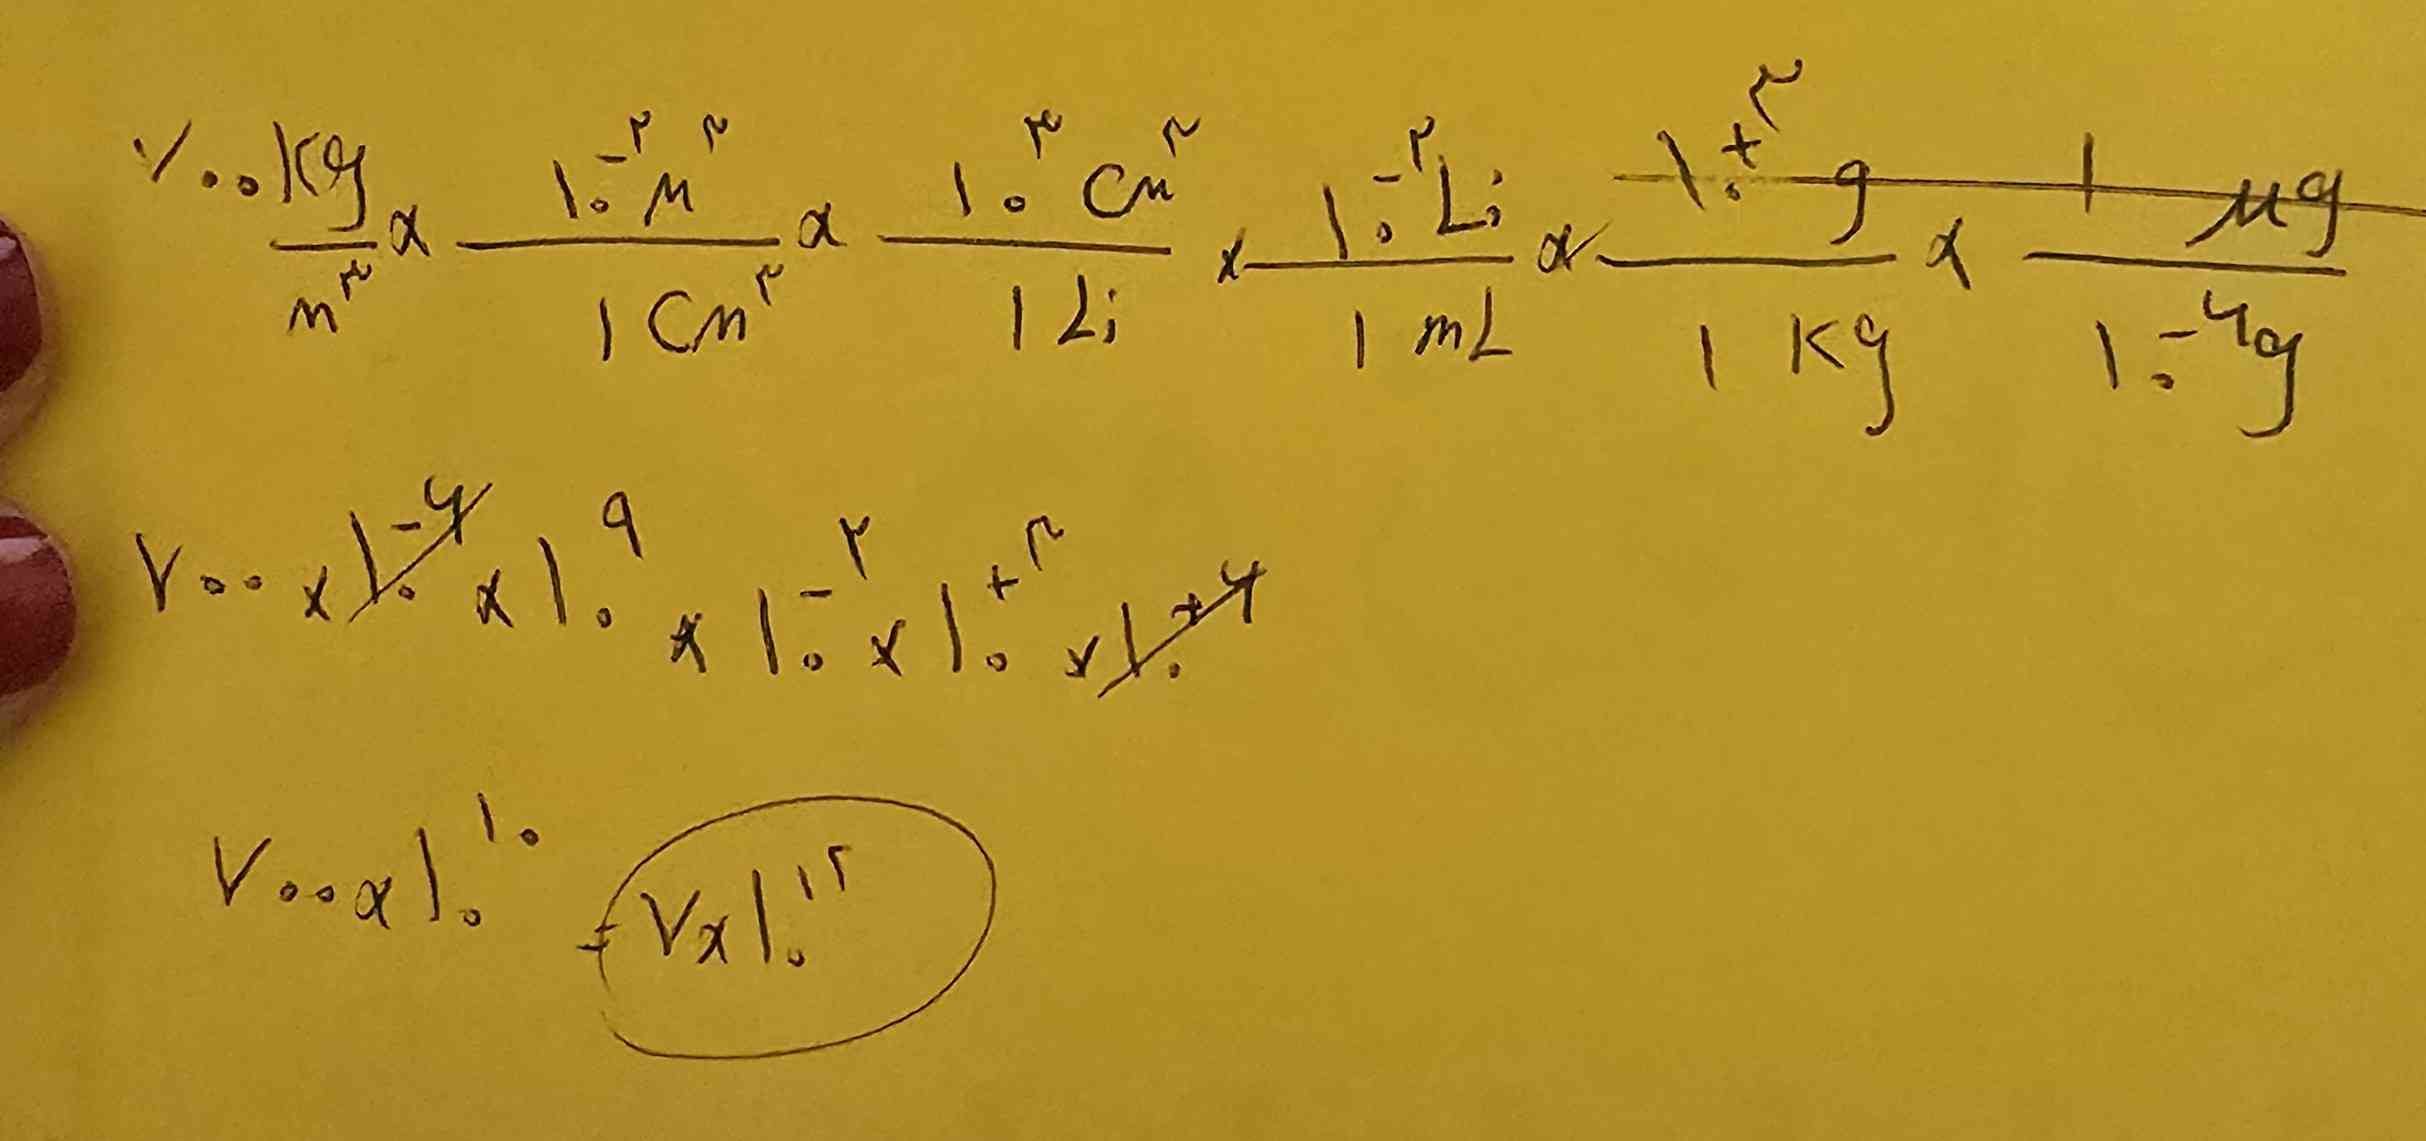 ۷۰۰ kg/m^۳ × ۱۰^-۲ m^۳ / ۱ cm^۳ × ۱۰^۳ cm^۳ / ۱ Li × ۱۰^-۲ Li / ۱ mL × ۱۰^+۳ g / ۱ kg × ۱ μg / ۱۰^-۶ g
۷۰۰ × ۱۰^-۶ × ۱۰^۹ × ۱۰^-۲ × ۱۰^+۳ × ۱۰^+۶
۷۰۰ × ۱۰^۱۰ = ۷ × ۱۰^۱۲